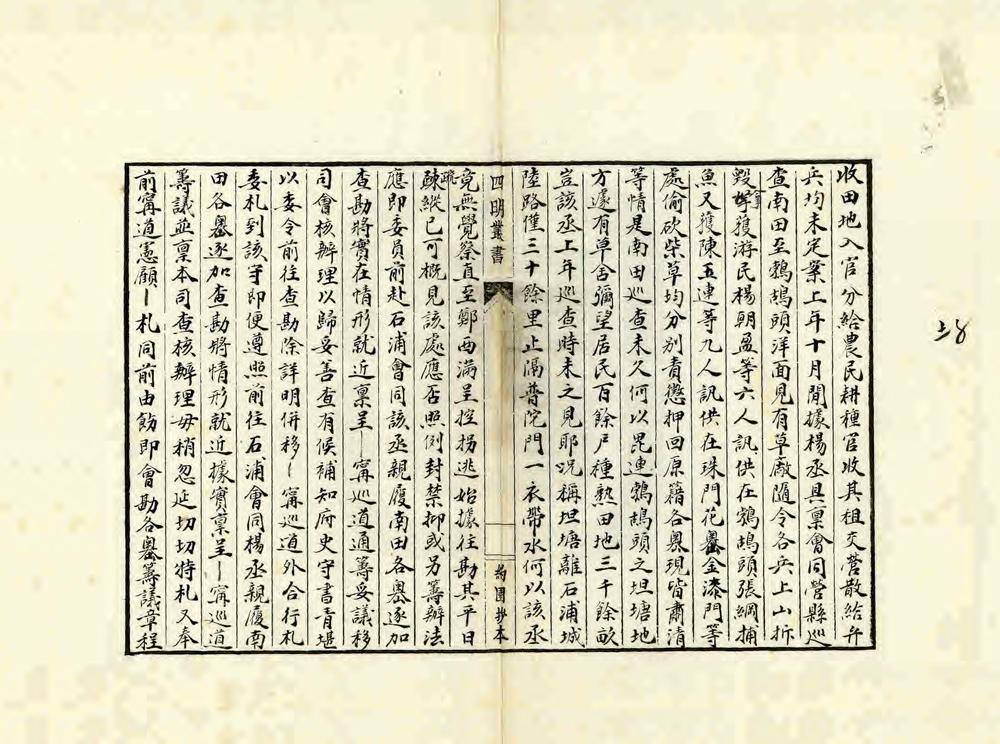 收田地入官分給農民耕種官收其租交營散給弁
兵均未定案上年十月間據楊丞具稟會同營縣巡
查南田至鶉鴣頭洋面見有草廠隨令各兵上山拆
毀拿獲游民楊朝盈等六人訊供在鶉鴣頭張網捕
魚又獲陳五連等九人訊供在珠門花嶴金漆門等
處偷砍柴草均分別責懲押回原籍各嶴現皆肅清
等情是南田巡查未久何以毘連鶉鴣頭之坦塘地
方遽有草舍彌望居民百餘戶種熟田地三千餘畝
豈該丞上年巡查時未之見耶況稱坦塘離石浦城
陸路僅三十餘里止隔普陀門一衣帶水何以該丞
四明叢書
約園抄本
竟無覺察直至鄭西滿呈控拐逃始據往勘其平日
疎縱已可概見該處應否照例封禁抑或另籌辦法
疏
應即委員前赴石浦會同該丞親履南田各嶴逐加
查勘將實在情形就近稟呈丨甯巡道通籌妥議移
司會核辦理以歸妥善查有候補知府史守書青堪
以委令前往查勘除詳明併移丨甯巡道外合行札
委札到該守即便遵照前往石浦會同楊丞親履南
田各嶴逐加查勘將情形就近據實稟呈丨甯巡道
籌議並稟本司查核辦理毋稍忽延切切特札又奉
前甯道憲顧丨札同前由飭即會勘各嶴籌議章程
上28